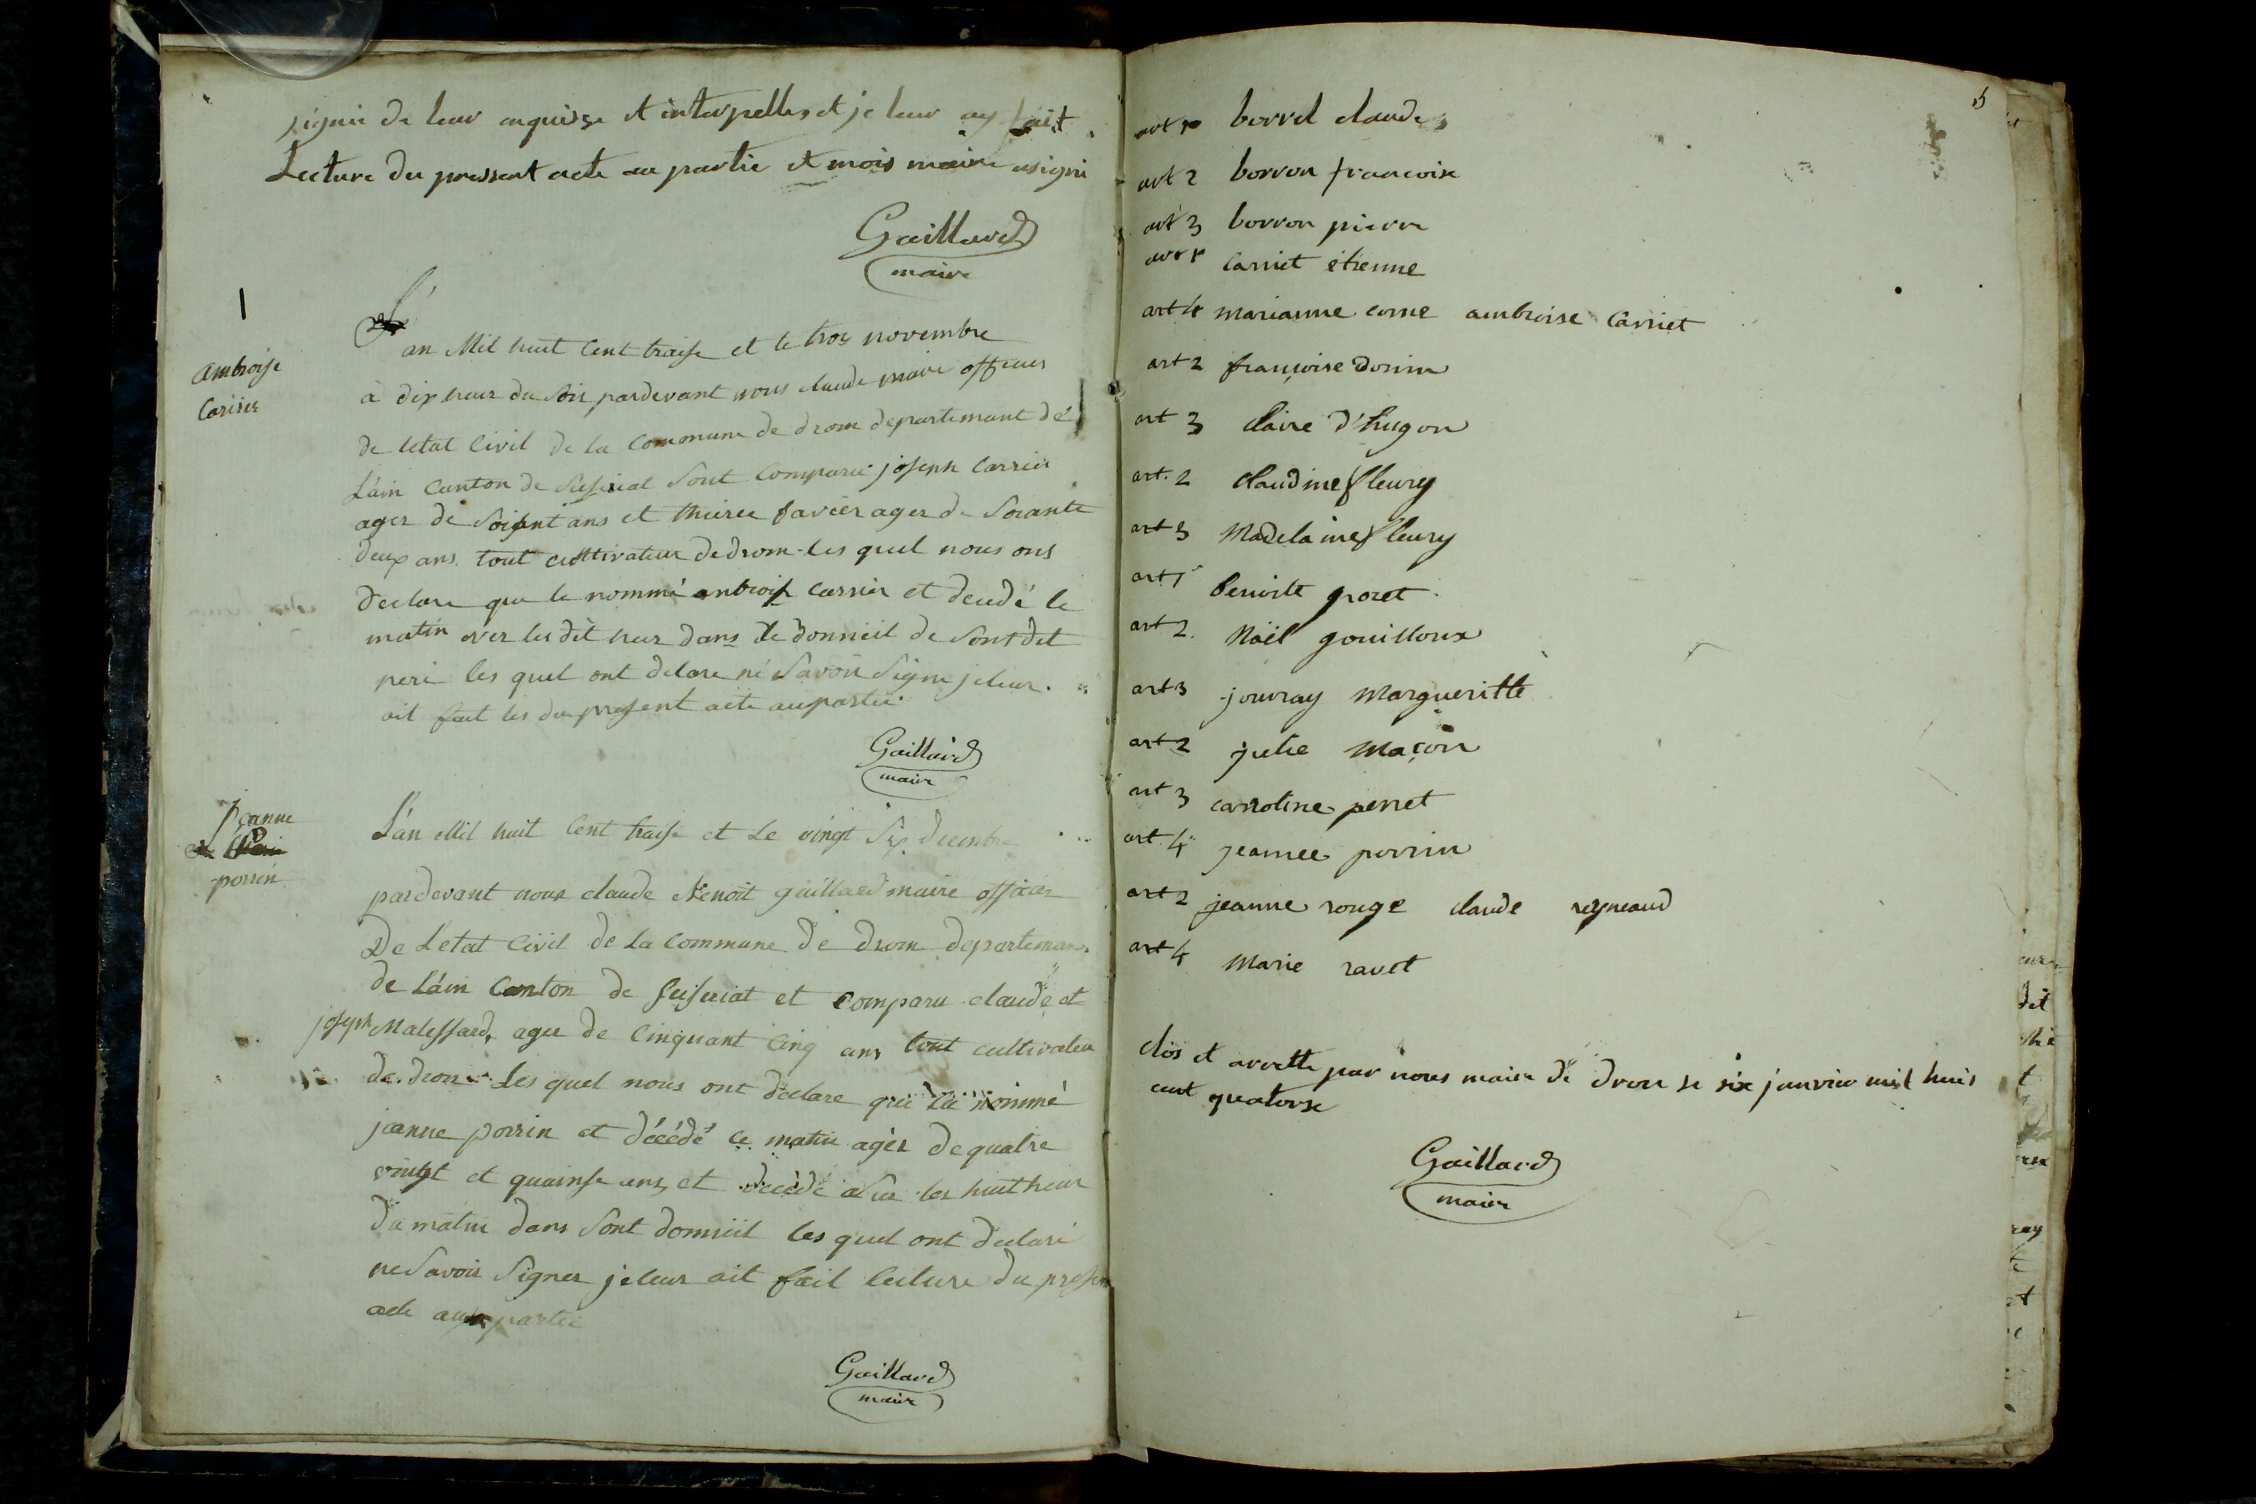 signé de leur enquisse et interpelles et je leur ay fait
Lecture du pressent acte au partie et mois maire
Gaillard
maire
Ambroise
Carier
L'
an Mil huit Cent traise et le trois novembre
à dix heur du Soir pardevant nous claude maire officier
de letat Civil de la Commune de drom departemant de
L'ain Canton de Seiseriat Sont Comparu joseph Carrier
ager de Soisant ans et favier ager de Soiante
deux ans tout cultivateur de drom les quel nous ons
declare que le nommé anbroise carrier et decedé le
matin ver les dit heur dans le domicil de Sont dit
pere les quel ont delare né Savoir Signe je leur
ait fait les du present acte au partie
Gaillard
maire
jeanne
porrin
L'an Mil huit Cent traise et Le vingt Six decembre
pardevant nous claude Benoit gaillard maire officier
De Letat Civil de La Commune de drom departeman
de L'ain Canton de Seiseriat et comparu claude et
joseph Malessard, ager de Cinquant Cinq ans tout cultivateur
de drom Les quel nous ont declare que La nommé
jeanne porrin et décédé ce matin agèr de quatre
vingt et quainse ans et decede les huit heur
du matin dans Sont domicil les quel ont declaré
ne Savoir Signer je leur ait fait lecture du present
acte aux partie
Gaillard
maire
5
art borrel claude
art 2 borron francoise
art 3 borron pierre
art 1 carriet étienne
art 4 marianne corne ambroise carriet
art 2 françoise dorin
art 3 claire d'hugon
art. 2 claudine fleury
art 3 Madelaine fleury
art 1 benoite goret
art 2. Noël gouilloux
art 3 jouvray Margueritte
art 2 julie Maçon
art 3 carroline perret
art 4 jeanne porrin
art 2 jeanne rouge claude reyneaud
art 4 Marie ravet
clos et arrette par nous maire de drom le six janvier mil huis
cent quatorse
Gaillard
maire